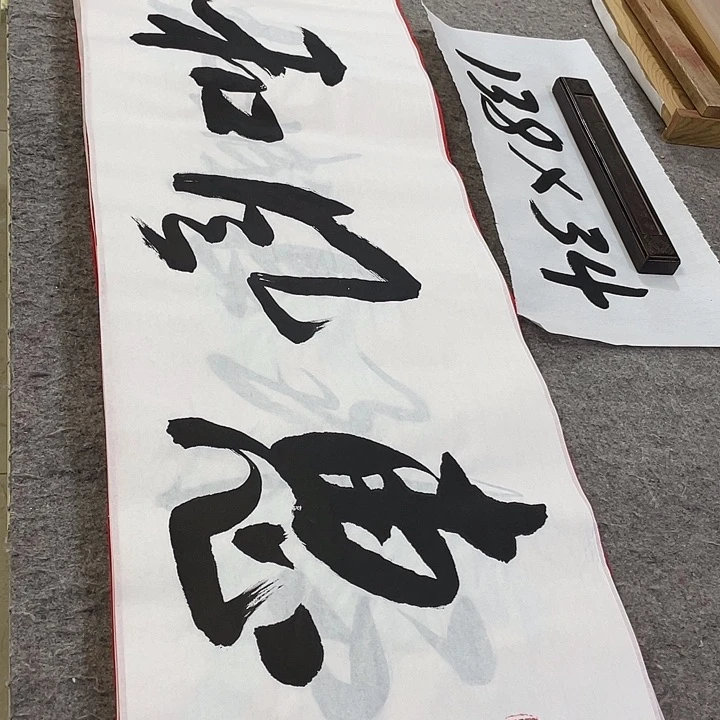 惠风和
138×34